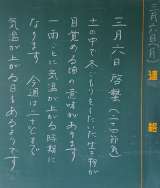 三月六日(月)
連絡
三月六日 啓蟄(二十四節気)
土の中で冬ごもりをしていた生き物が
目覚める頃の意味があります
一雨ごとに気温が上がる時期に
なります 今週は二十どまで
気温が上がる日もあるようです